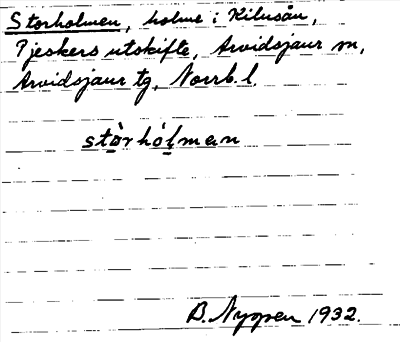 Storholmen, holme i Kilusån,
Pjeskers utskifte, Arvidsjaur sn,
Arvidsjaur tg, Norrb. l.
stòrhól̠man
B. Nygren 1932.